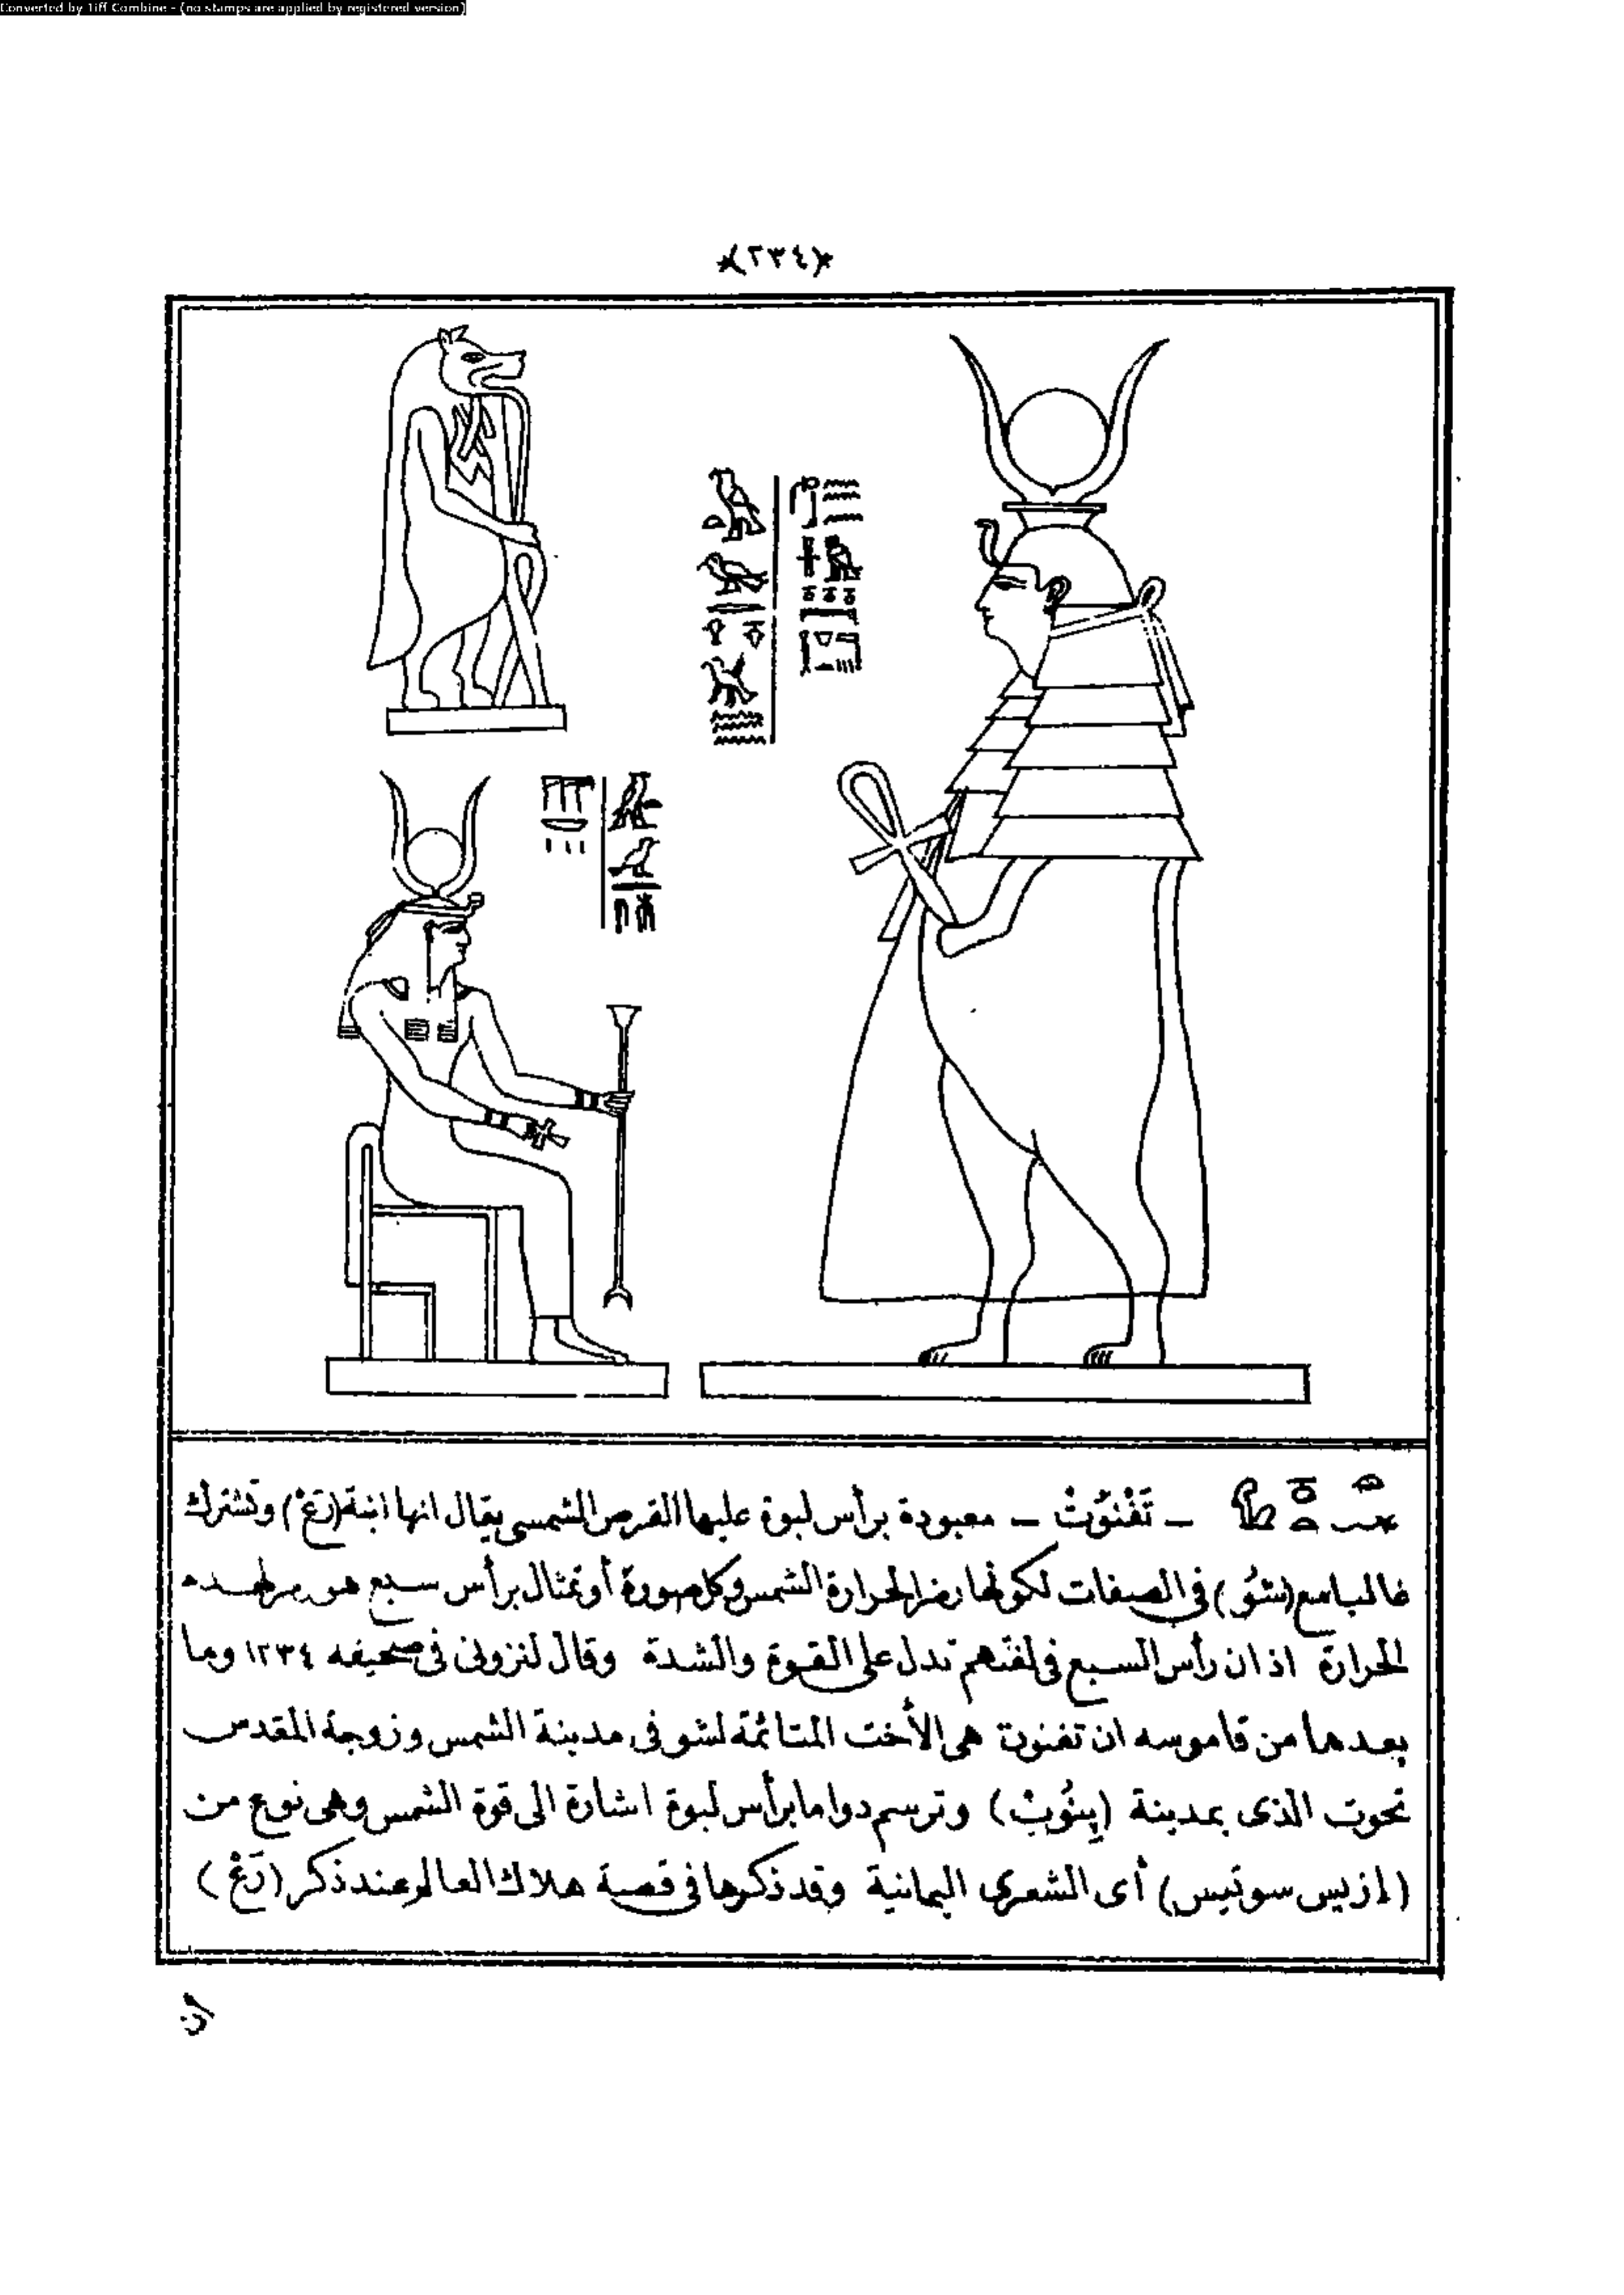 Converted by Tiff Combine - (no stamps are applied by registered version)
﴿٢٣٤﴾
ـ تَفْنُوْتْ ـ معبودة برأس لبوة عليها القرص الشمسى يقال انها ابنة (رَعْ) وتشترك
غالبا مع (شُو) فى الصفات لكونها رمزا لحرارة الشمس وكل صورة أو تمثال برأس سبع هو رمز لهذه
الحرارة اذ ان رأس السبع فى لغتهم تدل على القوة والشدة وقال لنزونى فى صحيفه ١٢٣٤ وما
بعدها من قاموسه ان تفنوت هى الأخت المتائمة لشو فى مدينة الشمس وزوجة المقدس
تحوت الذى بمدينة (پِنُوبْ) وترسم دواما برأس لبوة اشارة الى قوة الشمس وهى نوع من
(إزيس سوتيس) أى الشعرى اليمانية وقد ذكرها فى قصة هلاك العالم عند ذكر (رَعْ)